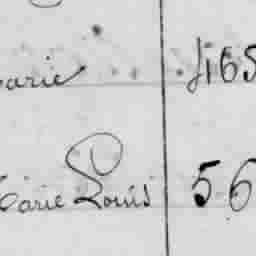 arie 465
Marie Louis 56